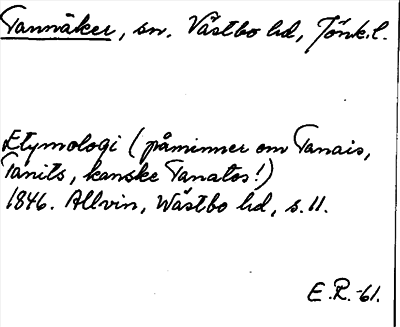 Tannåker, sn. Västbo hd, Jönk.l.
Etymologi (påminner om Tanais,
Tanits, kanske Tanatos!)
1846. Allvin, Wästbo hd, s.11.
E.R.-61.